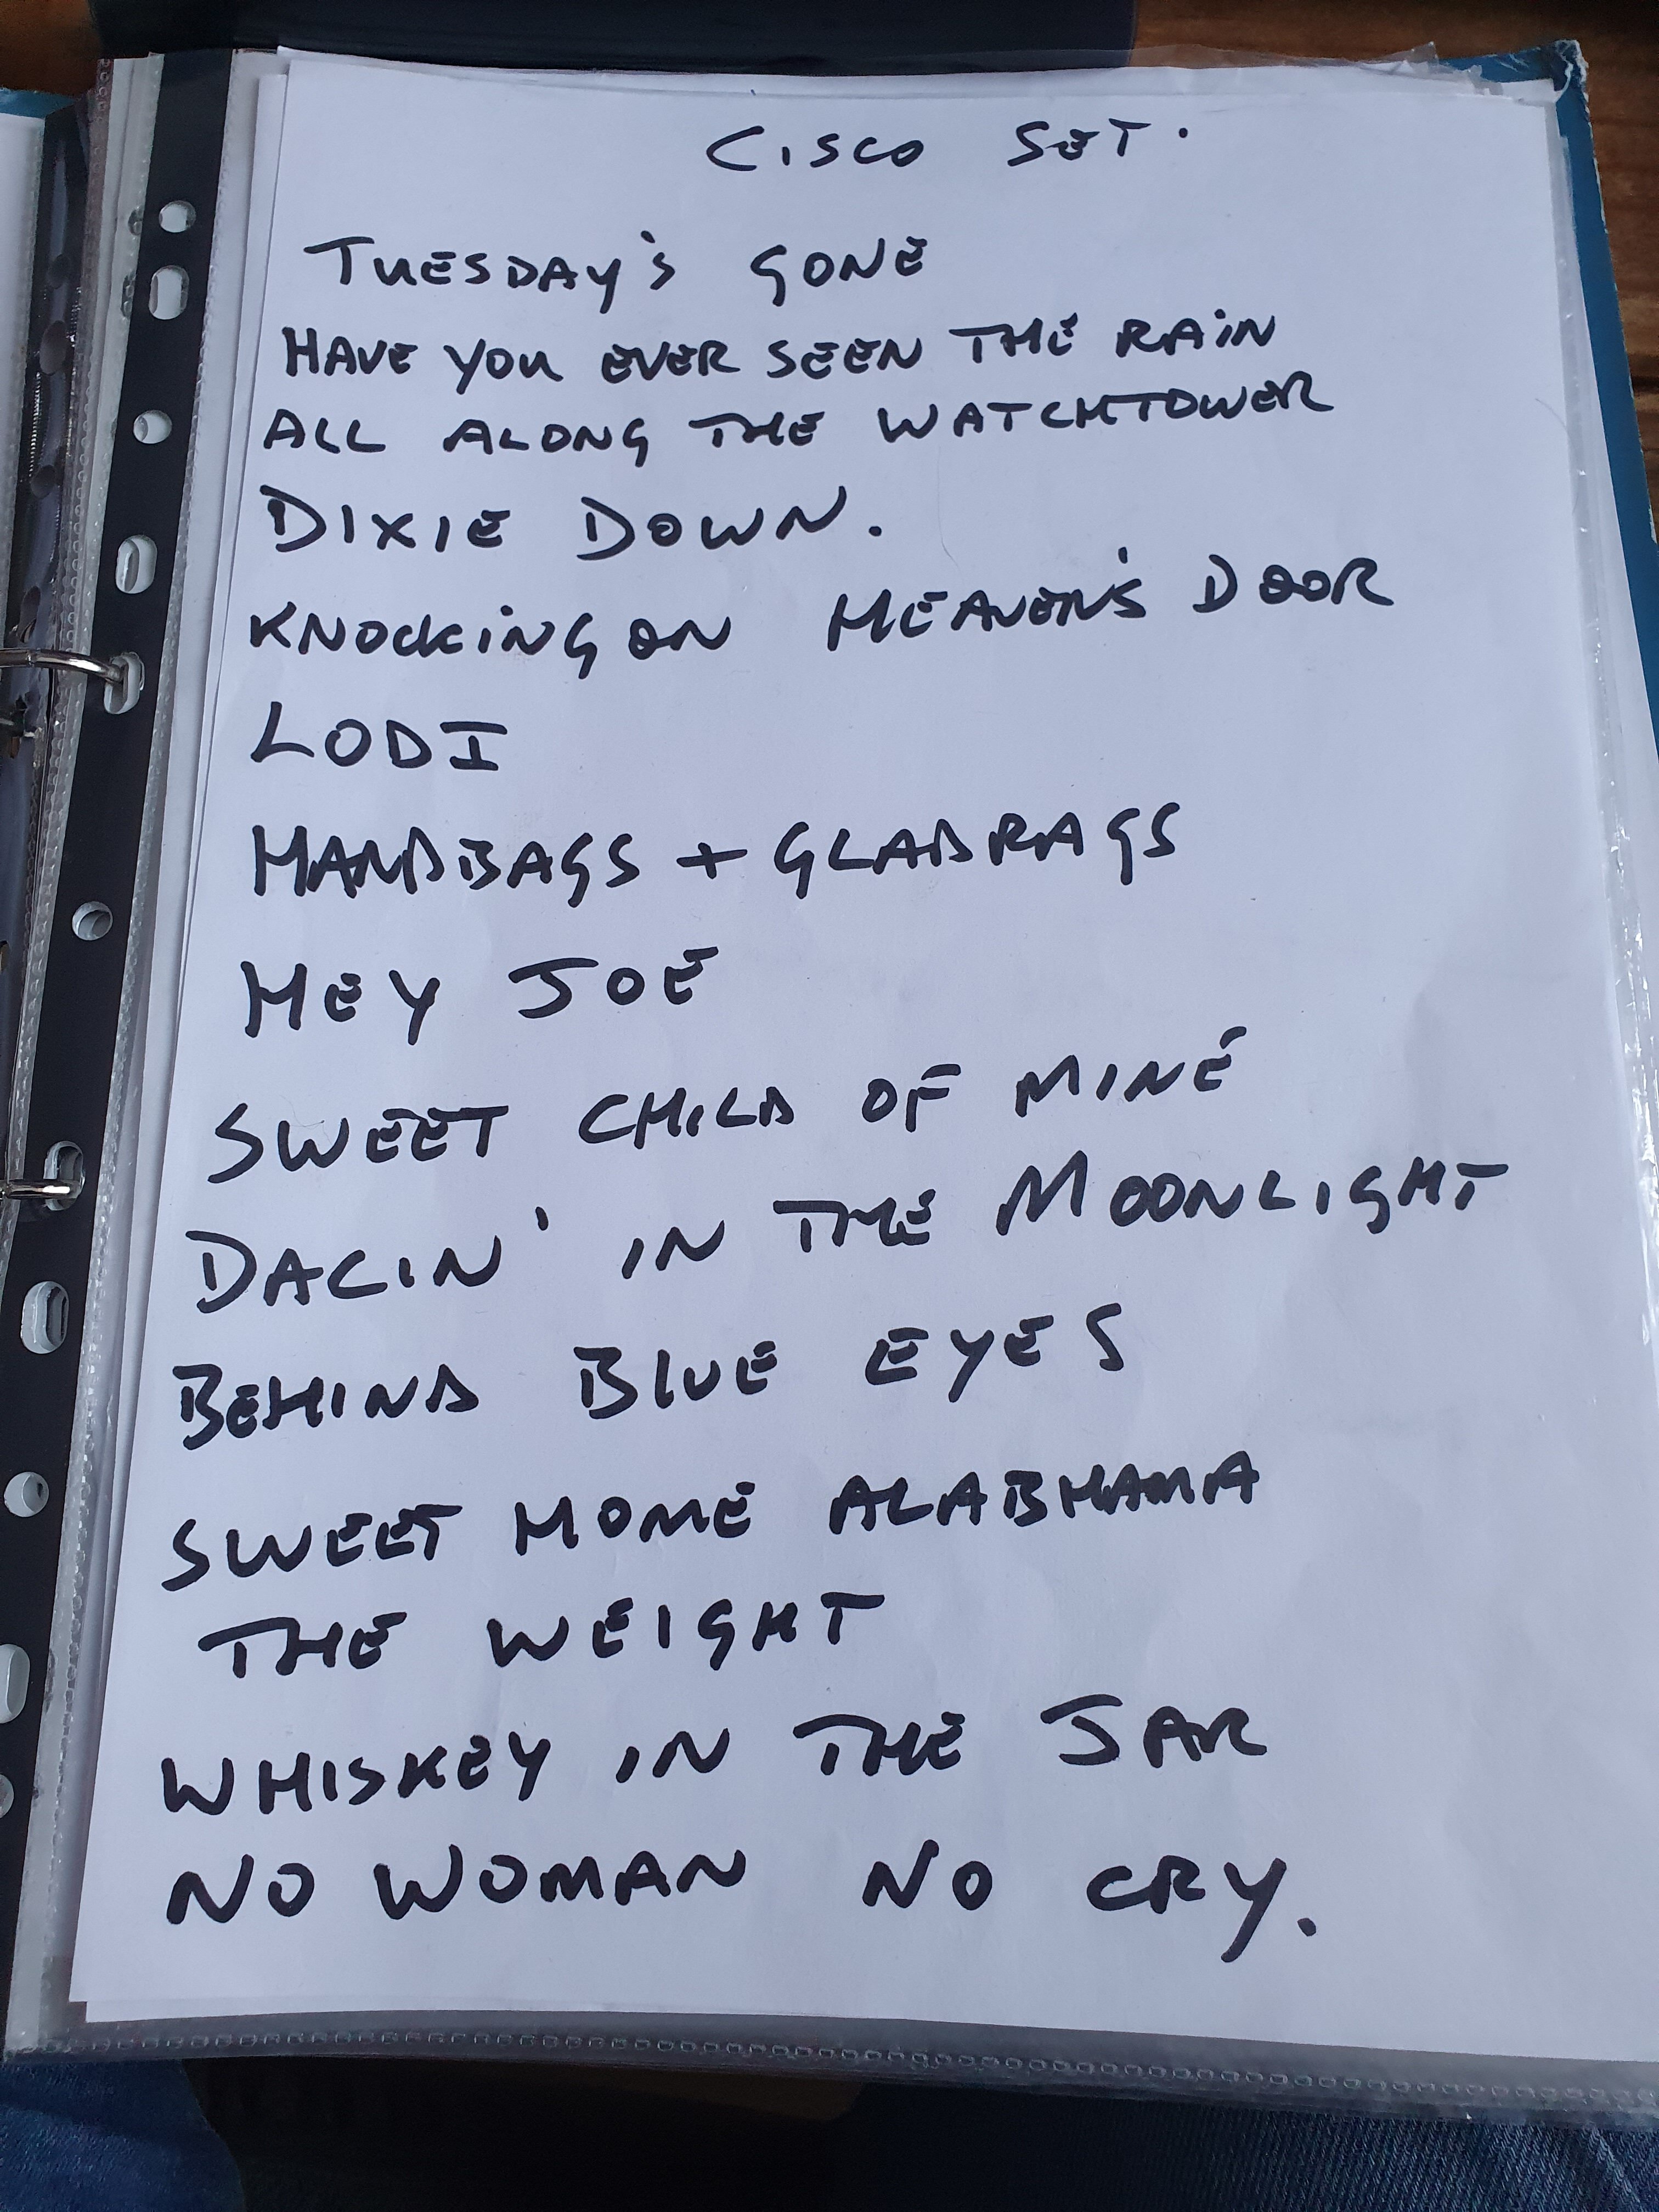 CISCO SET.
TUESDAY'S GONE
HAVE YOU EVER SEEN THE RAIN
ALL ALONG THE WATCHTOWER
DIXIE DOWN.
KNOCKING ON HEAVEN'S DOOR
LODI
HANDBAGS + GLADRAGS
HEY JOE
SWEET CHILD OF MINE
DACIN' IN THE MOONLIGHT
BEHIND BLUE EYES
SWEET HOME ALABHAMA
THE WEIGHT
WHISKEY IN THE JAR
NO WOMAN NO CRY.